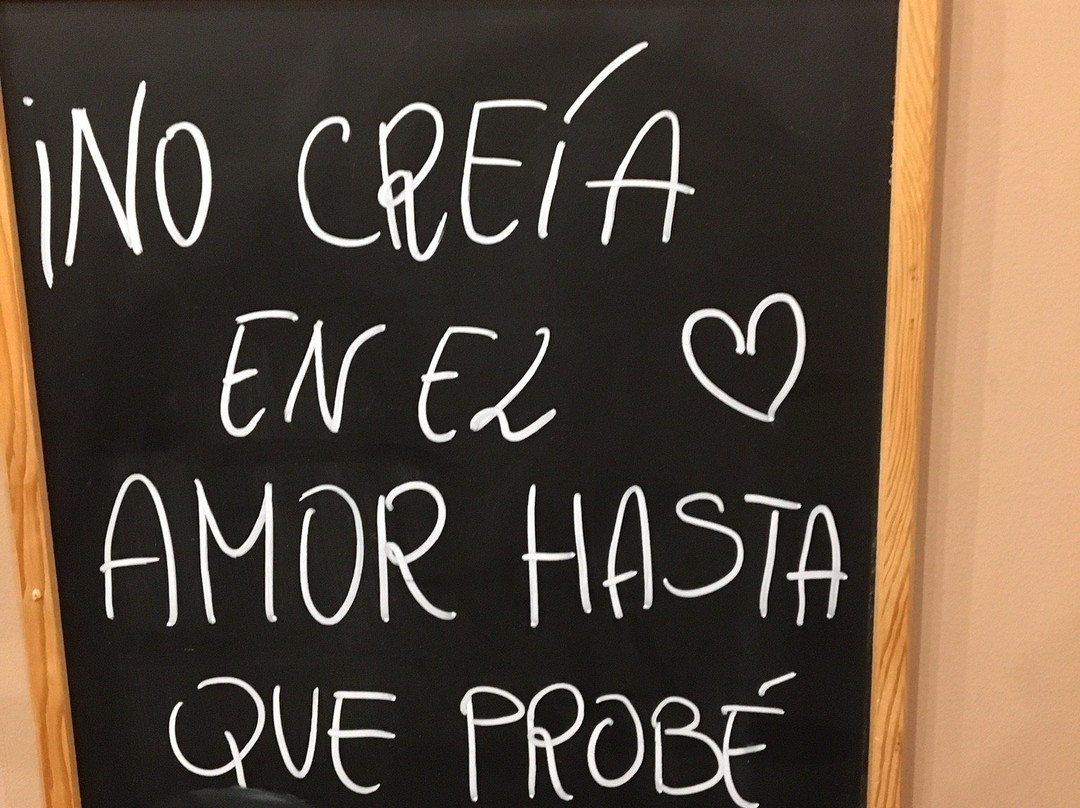 ¡NO CREÍA
EN EL ♡
AMOR HASTA
QUE PROBÉ